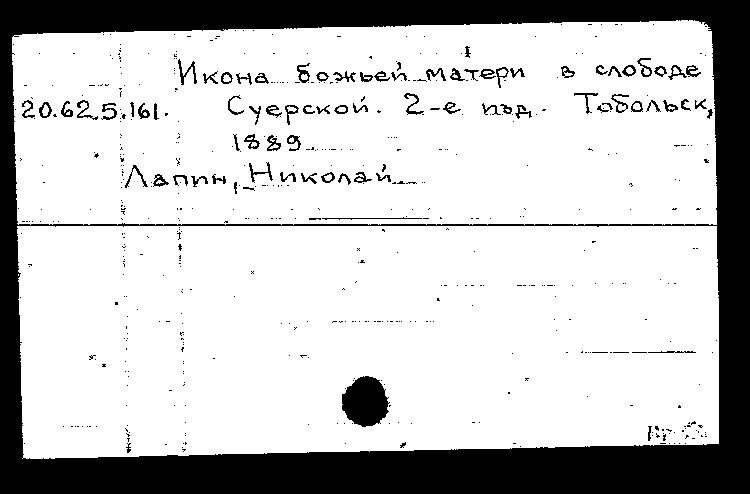 Икона божьей матери в слободе
20.62.5.161. Суерской. 2-е изд. Тобольск,
1889.
Лапин, Николай